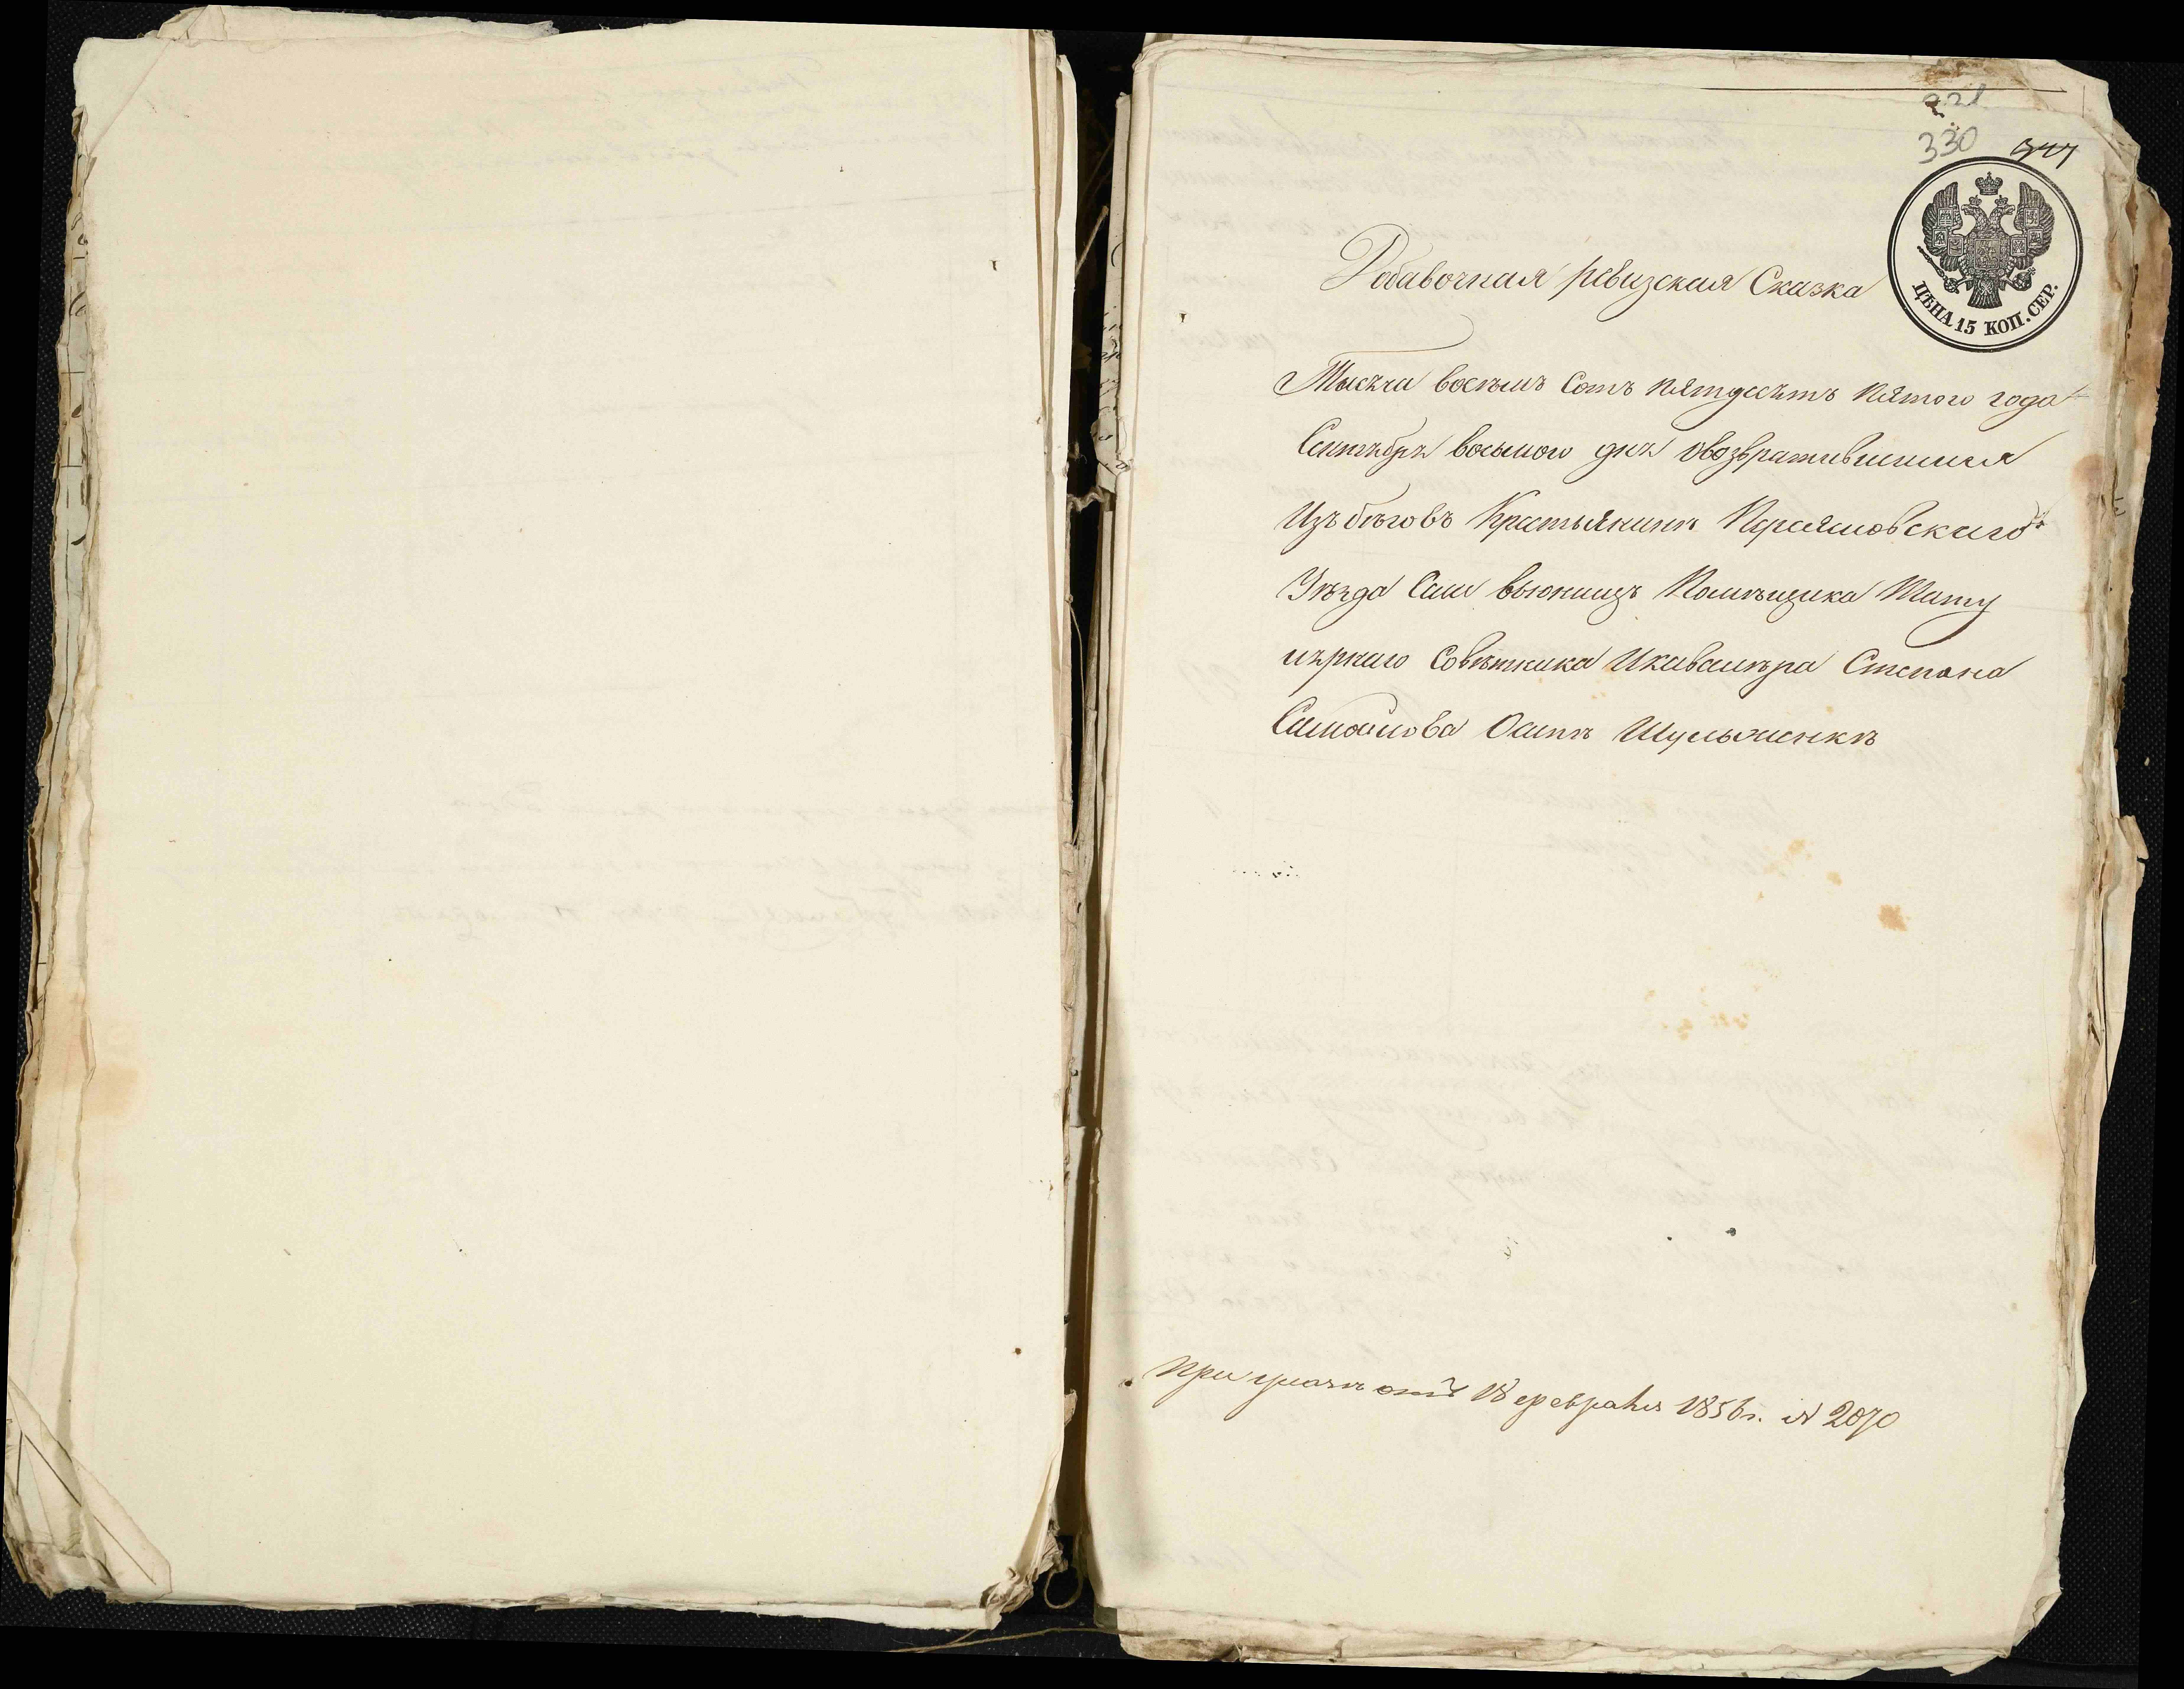 221
330
ЦѢНА 15 КОП. СЕР.
Добавочная ревизская Сказка
Тысяча восемъ Сотъ пятдесятъ пятого года
Сентября восьмого дня овозвратившимся
Изъ бѣговъ Крестьянинѣ Переясловского
Уѣзда Села вьюнищъ Помѣщика Титу
лярнаго Совѣтника Икавалѣра Степана
Самойлова Осипѣ Шульженкѣ
при указѣ отъ 18 февраля 1856 г. № 2070